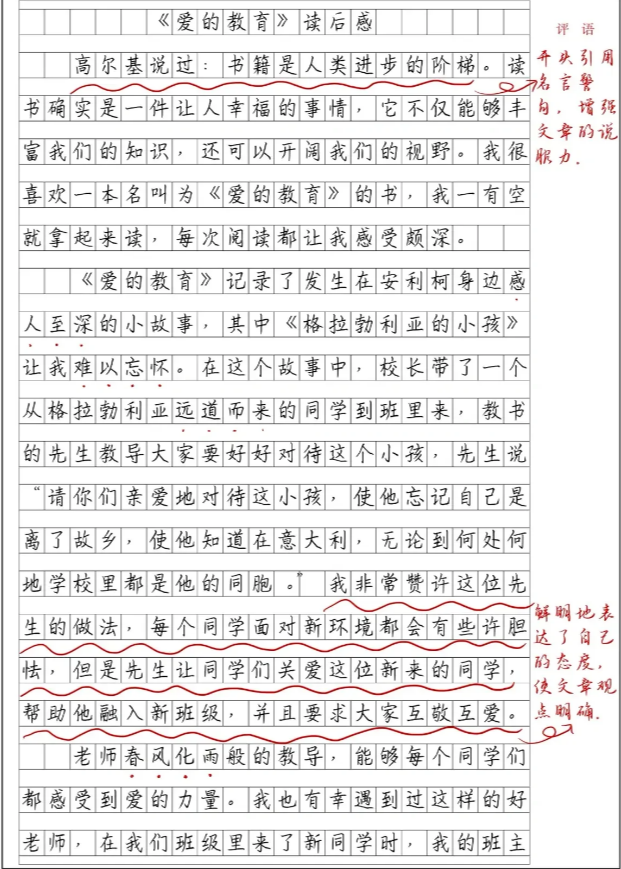 《爱的教育》读后感
高尔基说过：书籍是人类进步的阶梯。读
书确实是一件让人幸福的事情，它不仅能够丰
富我们的知识，还可以开阔我们的视野。我很
喜欢一本名叫为《爱的教育》的书，我一有空
就拿起来读，每次阅读都让我感受颇深。
《爱的教育》记录了发生在安利柯身边感
人至深的小故事，其中《格拉勃利亚的小孩》
让我难以忘怀。在这个故事中，校长带了一个
从格拉勃利亚远道而来的同学到班里来，教书
的先生教导大家要好好对待这个小孩，先生说
“请你们亲爱地对待这小孩，使他忘记自己是
离了故乡，使他知道在意大利，无论到何处何
地学校里都是他的同胞。”我非常赞许这位先
生的做法，每个同学面对新环境都会有些许胆
怯，但是先生让同学们关爱这位新来的同学，
帮助他融入新班级，并且要求大家互敬互爱。
老师春风化雨般的教导，能够每个同学们
都感受到爱的力量。我也有幸遇到过这样的好
老师，在我们班级里来了新同学时，我的班主
评语
开头引用
名言警
句，增强
文章的说
服力．
鲜明地表
达了自己
的态度，
使文章观
点明确．